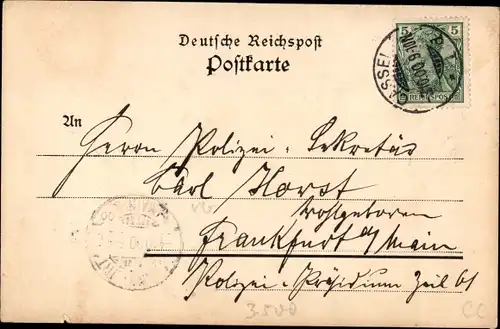 Deutsche Reichspost
Postkarte
5 5
REICHSPOST
CASSEL
An
Herrn Polizei-Sekretär
Carl Horst
Wohlgeboren
Frankfurt a/Main
Polizei-Präsidium Zeil 61
3500
CC